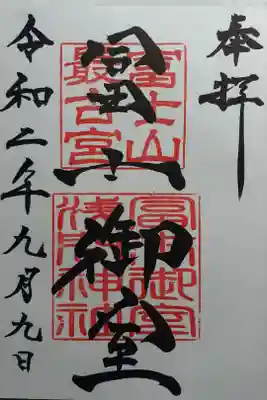 奉拝
冨士御室
富士山
最古宮
冨士御室
浅間神社
令和二年九月九日